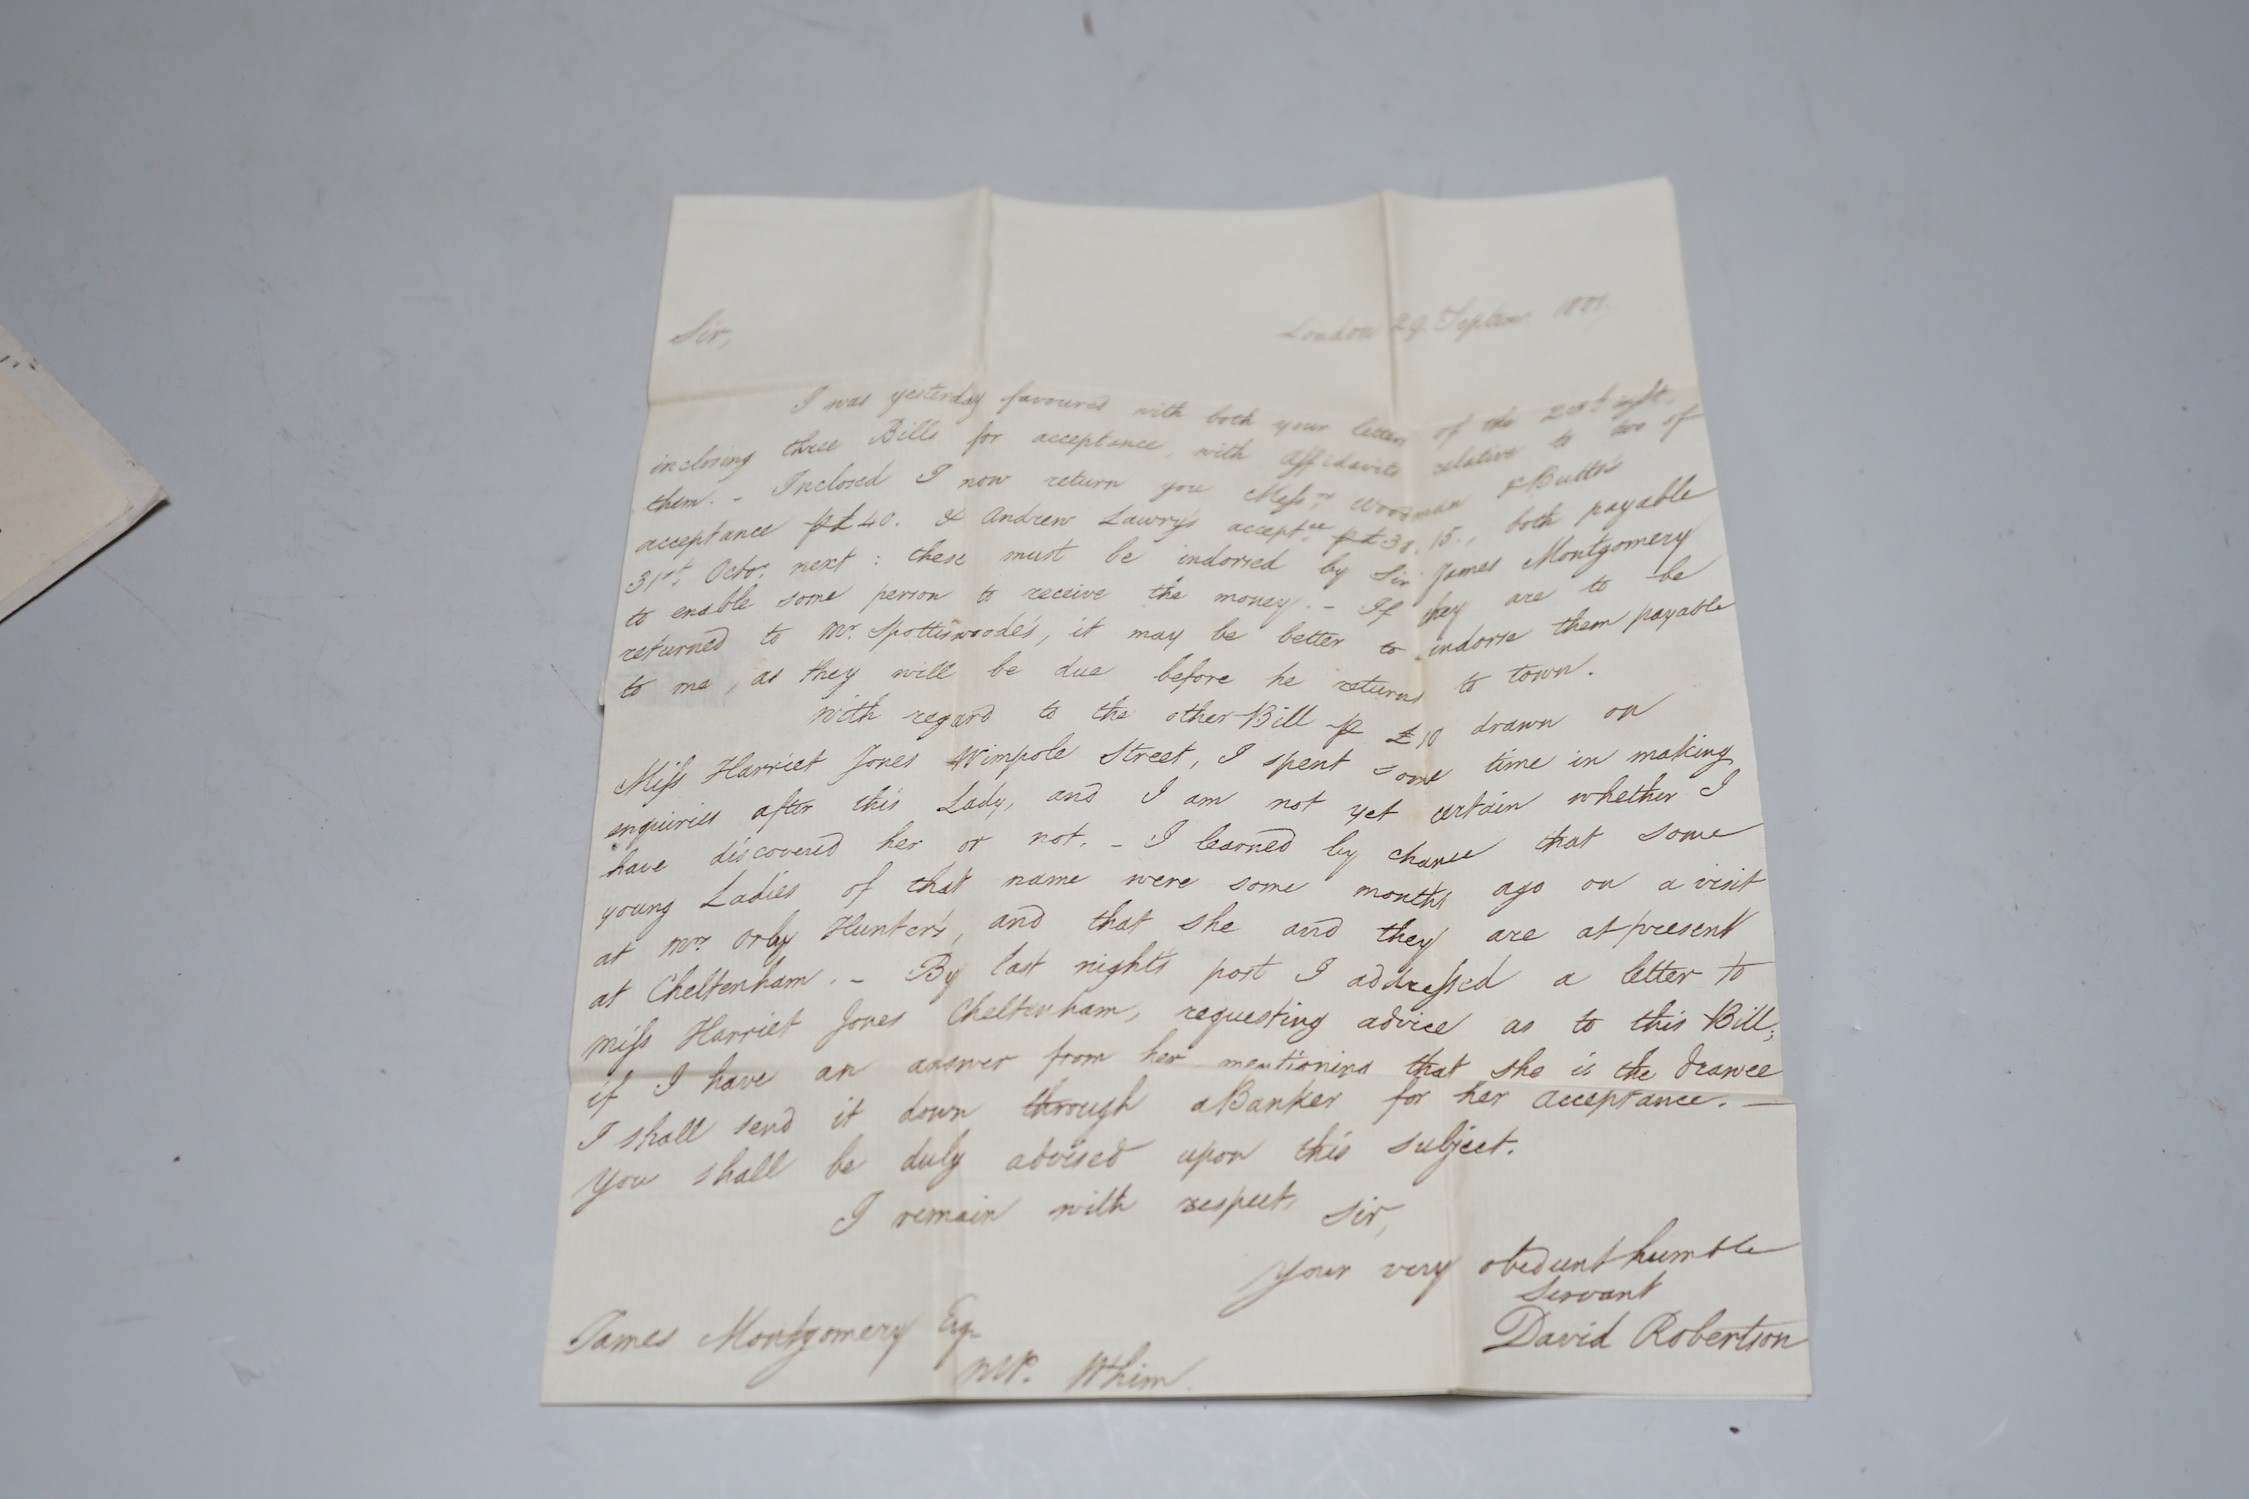 Sir,
London 29. Septem. 1801.
I was yesterday favoured with both your letters of the inst.
inclosing three Bills for acceptance, with Affidavits relative to two of
them. - Inclosed I now return you Messrs. Woodman & Butts's
acceptance £40. & Andrew Lawry's acceptce 15., both payable
31st. Octor. next: these must be indorsed by Sir James Montgomery
to enable some person to receive the money. - If they are to be
returned to Mr. Spottiswoode's, it may be better to indorse them payable
to me, as they will be due before he returns to town.
With regard to the other Bill £10 drawn on
Miss Harriet Jones Wimpole Street, I spent some time in making
enquiries after this Lady, and I am not yet certain whether I
have discovered her or not. - I learned by chance that some
young Ladies of that name were some months ago on a visit
at Mrs Orby Hunter's, and that she and they are at present
at Cheltenham. - By last night's post I addressed a letter to
Miss Harriet Jones Cheltenham, requesting advice as to this Bill;
if I have an answer from her mentioning that she is the drawee
I shall send it down through a Banker for her acceptance. -
You shall be duly advised upon this subject.
I remain with respect, Sir,
Your very obedient humble
Servant
David Robertson
James Montgomery Esq.
MP. Whim.